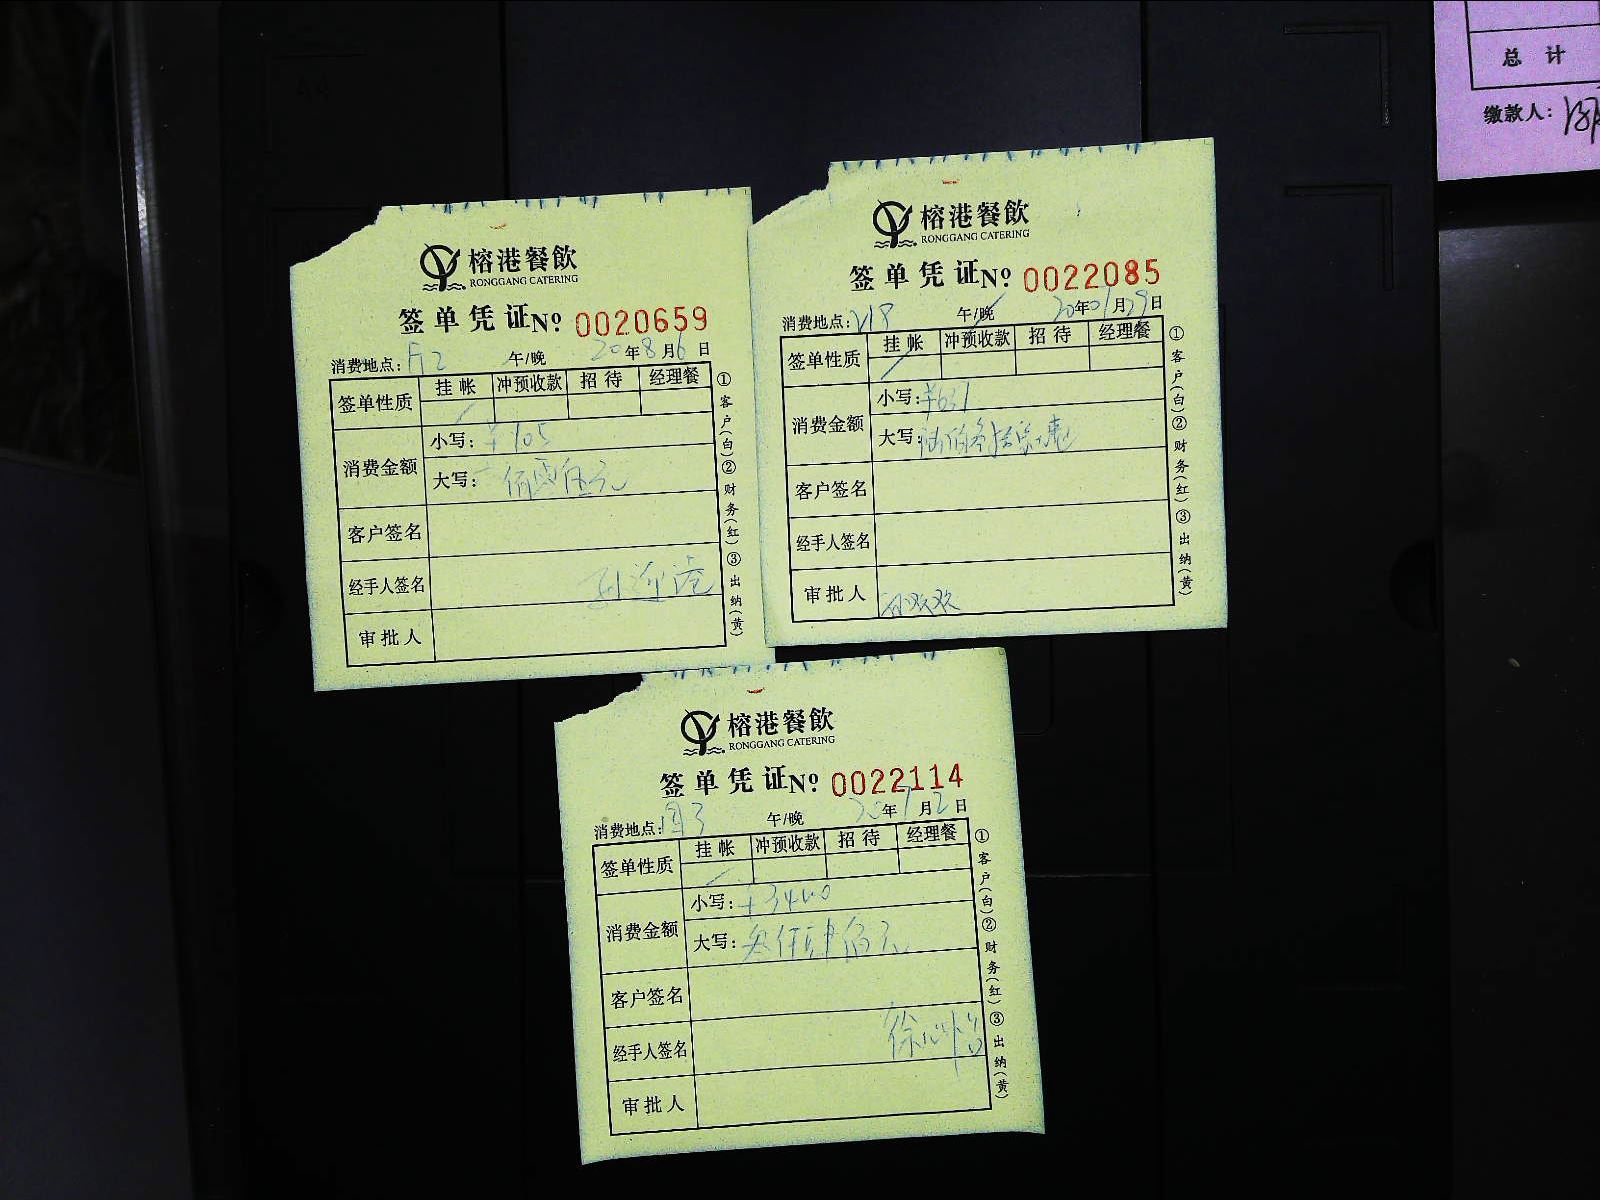 榕港餐飲
RONGGANG CATERING
签单凭证No 0020659
消费地点: 午/晚 20年8月6日
签单性质 挂帐 冲预收款 招待 经理餐
消费金额 小写:¥105
大写:壹佰零伍元
客户签名
经手人签名
审批人
①客户(白)②财务(红)③出纳(黄)
榕港餐飲
RONGGANG CATERING
签单凭证No 0022085
消费地点:V18 午/晚 20年01月29日
签单性质 挂帐 冲预收款 招待 经理餐
消费金额 小写:¥631
大写:
客户签名
经手人签名
审批人
①客户(白)②财务(红)③出纳(黄)
榕港餐飲
RONGGANG CATERING
签单凭证No 0022114
消费地点: 午/晚 20年1月2日
签单性质 挂帐 冲预收款 招待 经理餐
消费金额 小写:¥3400
大写:叁仟肆佰元
客户签名
经手人签名 徐心怡
审批人
①客户(白)②财务(红)③出纳(黄)
总计
缴款人: